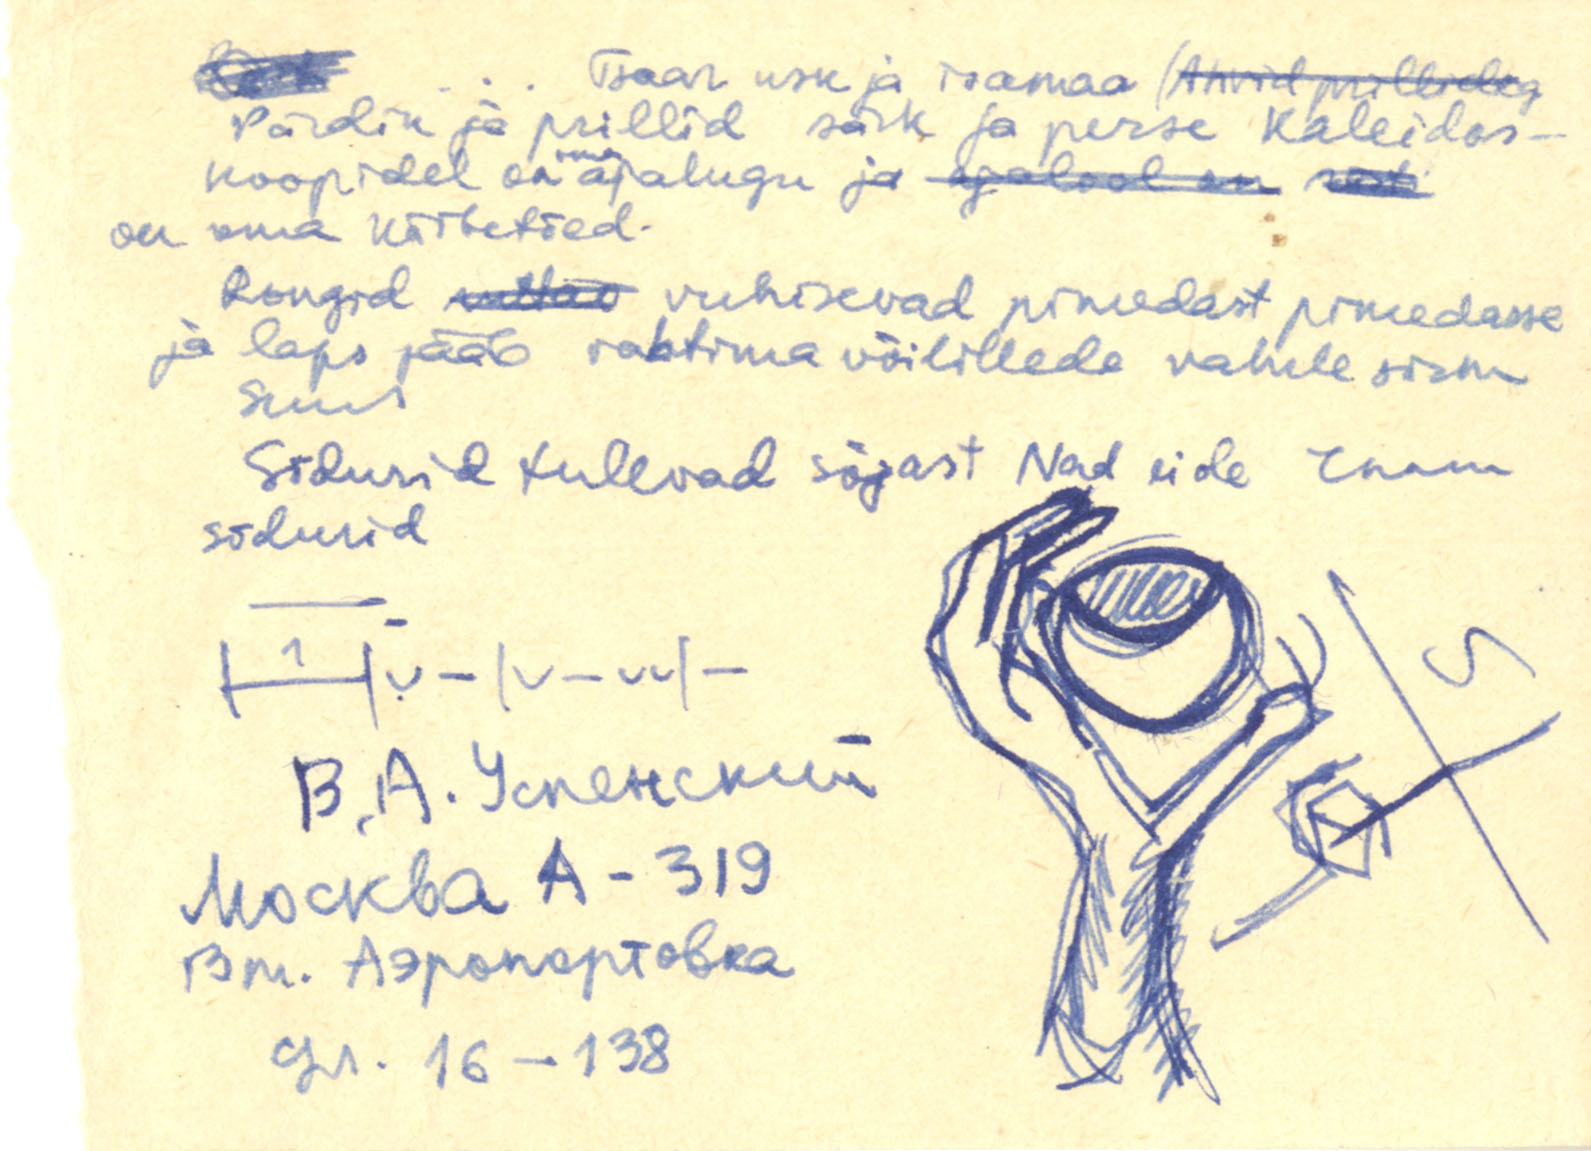 . . . Tsaar usk ja isamaa (Ahvid prillidega
Pärdik ja prillid särk ja perse Kaleidos-
koopidel on oma ajalugu ja ajalool on
on oma kõibetõed.
Rongid vuhisevad pimedast pimedasse
ja laps jääb istuma võilillede vahele sõrm
suus
Sõdurid tulevad sõjast Nad ei ole Enam
sõdurid
1
В.А. Успенский
Москва А-319
Вт. Аэропортовка
ул. 16-138
S